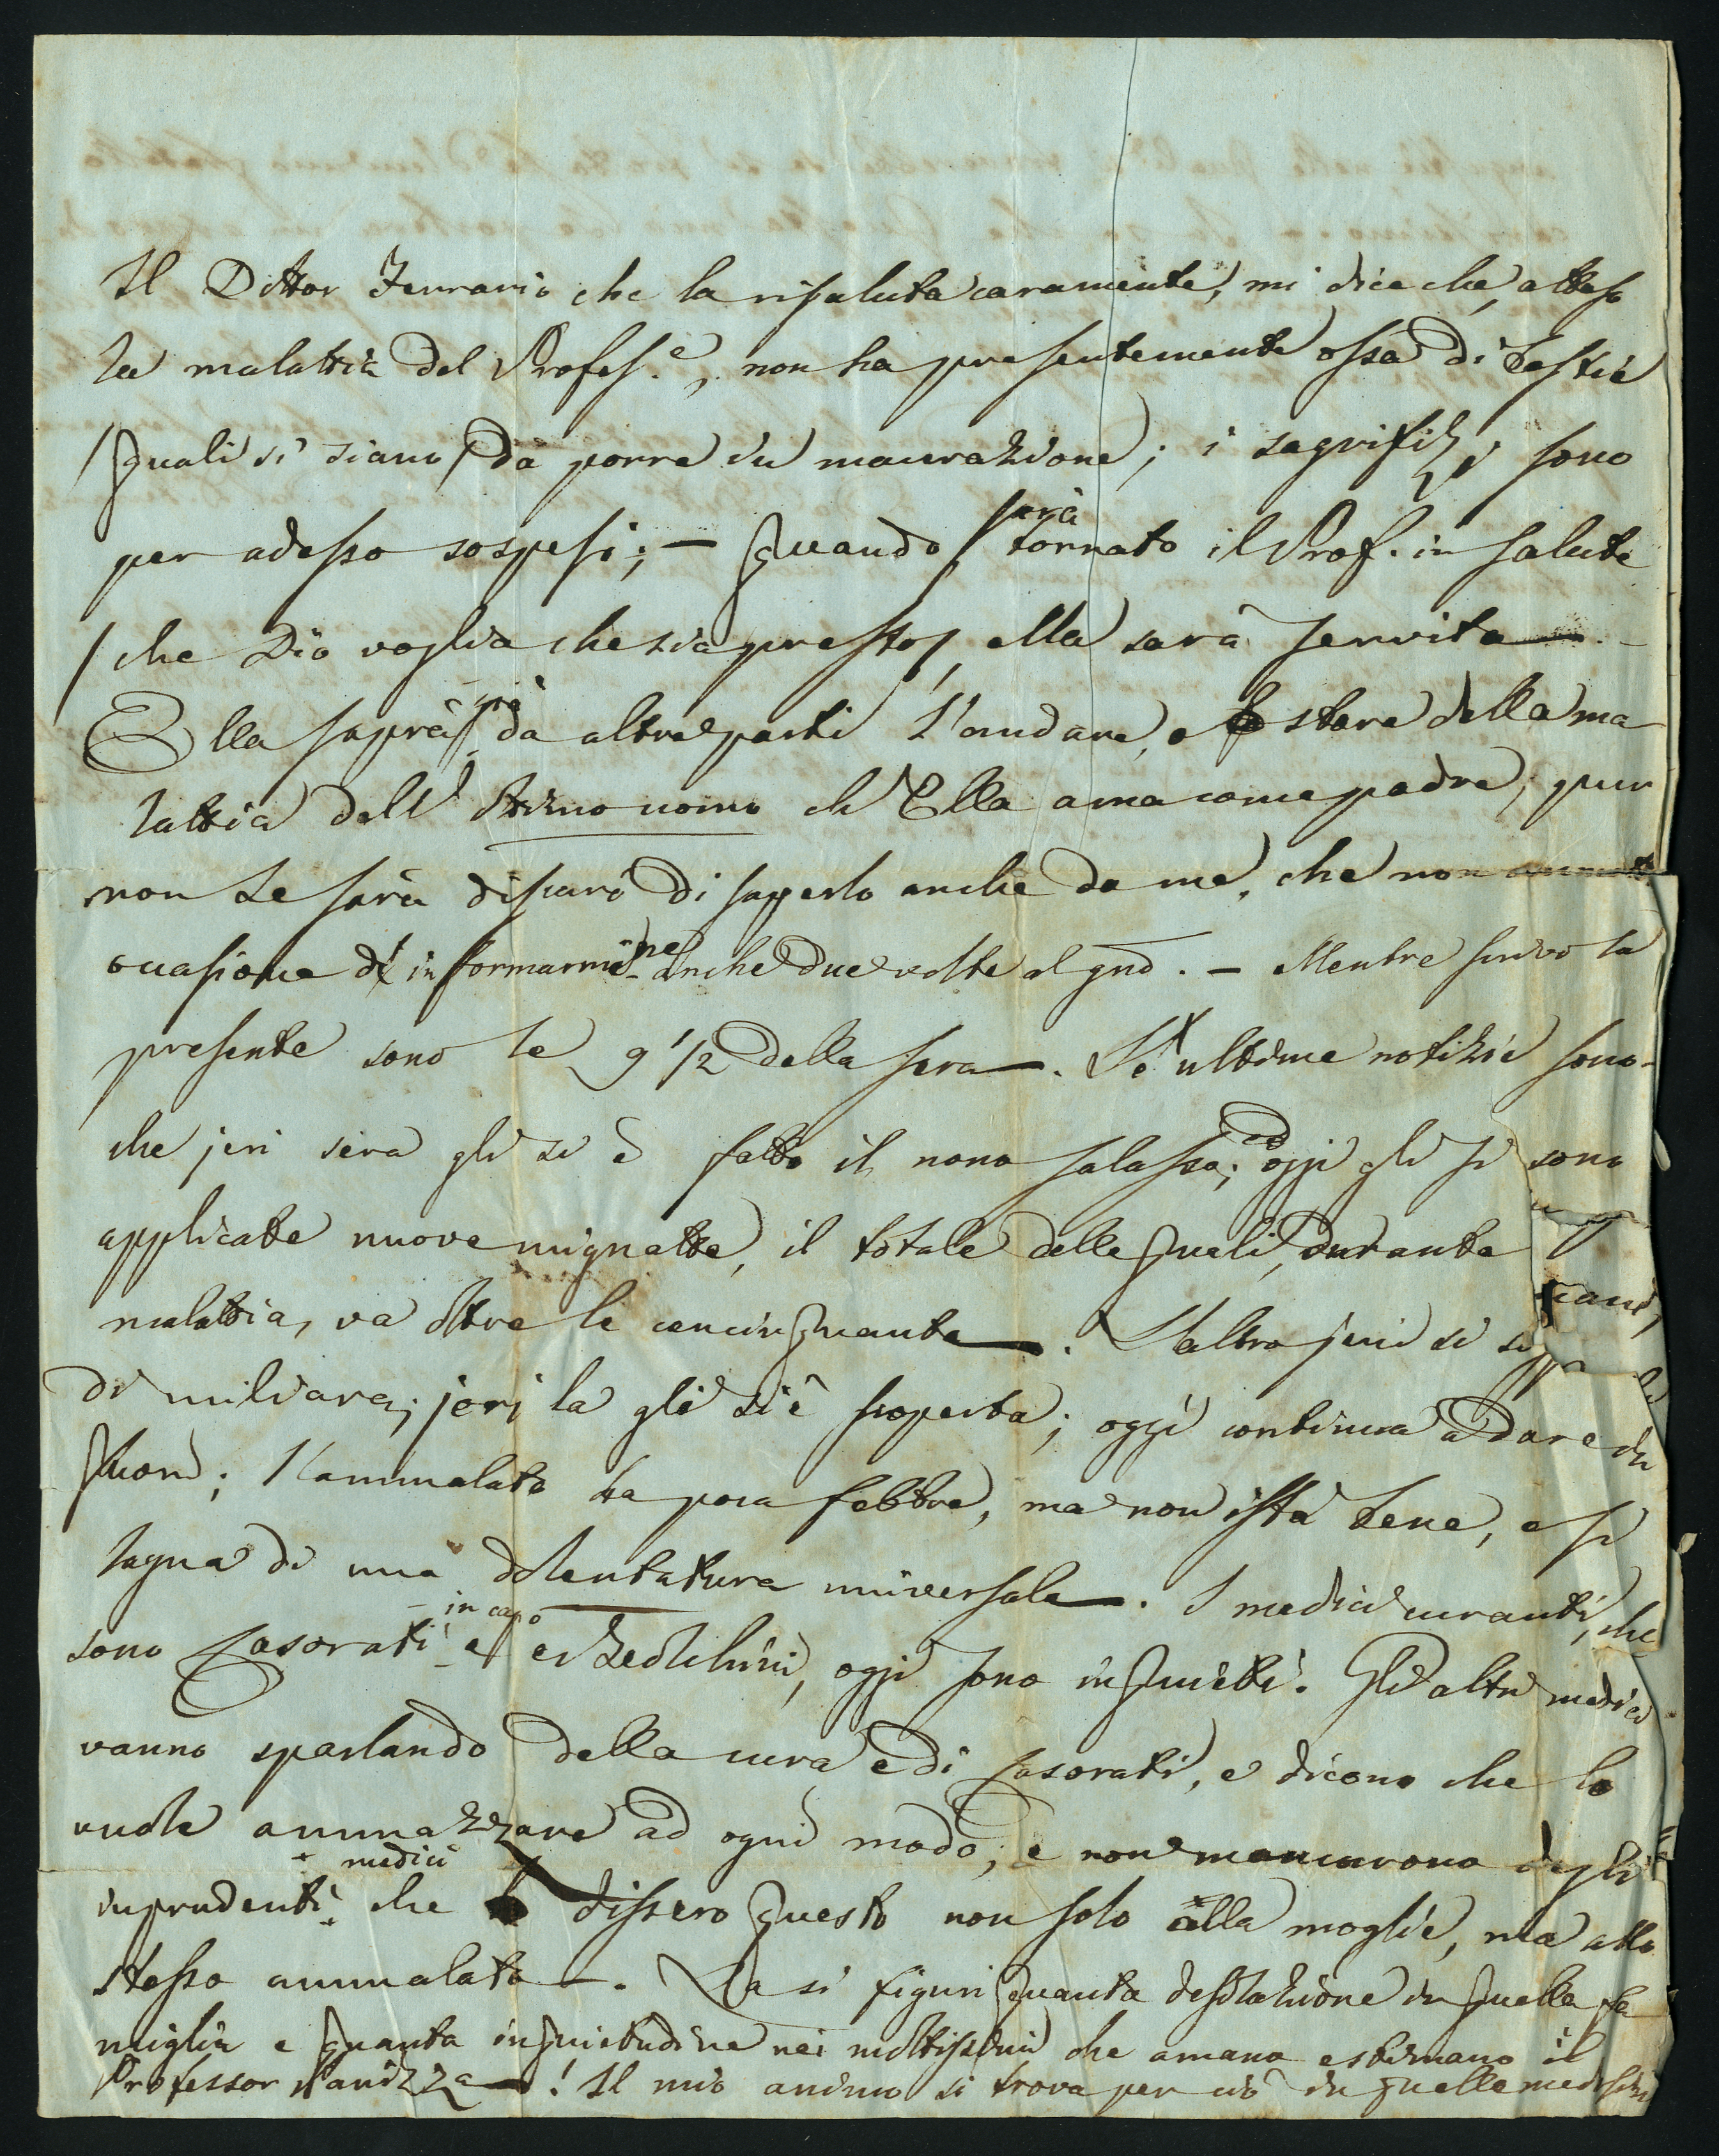 Il Dottor Ferrario che la risaluta caramente, mi dice che, atteso
la malattia del Profes.e, non ha presentemente ossa di bestie
/quali si siano/ da porre in macerazione; i sagrifizj sono
per adesso sospesi; — Quando sarà tornato il Prof. in salute
/che Dio voglia che sia presto/ ella sarà servita —
Ella saprà già da altre parti l'andare, e lo stare della ma
lattia dell' ottimo uomo ch'Ella ama come padre; pur
non le sarà discaro di saperlo anche da me, che non ommetto
occasione di informarmene anche due volte al gno. — Mentre scrivo la
presente sono le 9 1/2 della sera —. Le ultime notizie sono
che jeri sera gli si è fatto il nono salasso; ed oggi gli si sono
applicate nuove mignatte, il totale delle quali, durante
malattia, va oltre le cencinquanta —. L'altro jeri si
di miliare; jeri la gli si è scoperta; oggi continua a dare in
fuori; l'ammalato ha poca febbre, ma non istà bene, e si
lagna di una dolentatura universale —. I medici curanti, che
sono Casorati in capo e, oggi sono inquieti. Gli altri medici
vanno sparlando della cura e di Casorati, e dicono che lo
vuole ammazzare ad ogni modo; e non mancarono degli
inprudenti medici che dissero questo non solo alla moglie, ma allo
stesso ammalato —. La si figuri quanta desolazione in quella fa
miglia e quanta inquietudine nei moltissimi che amano e stimano il
Professor Panizza —! Il mio animo si trova per ciò in quelle medesime